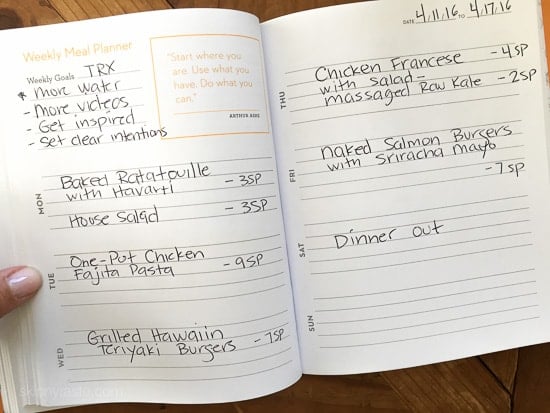 Weekly Meal Planner
Weekly Goals TRX
* more water
- more videos
- Get inspired
- Set clear intentions
"Start where you
are. Use what you
have. Do what you
can."
ARTHUR ASHE
MON
Baked Ratatouille
with Havarti - 3SP
House Salad - 3SP
TUE
One-Pot Chicken
Fajita Pasta - 9SP
WED
Grilled Hawaiin
Teriyaki Burgers - 7SP
DATE 4/11/16 TO 4/17/16
THU
Chicken Francese - 4SP
with salad -
massaged Raw Kale - 2SP
FRI
Naked Salmon Burgers
with Sriracha mayo
- 7SP
SAT
Dinner out
SUN
skinnytaste.com